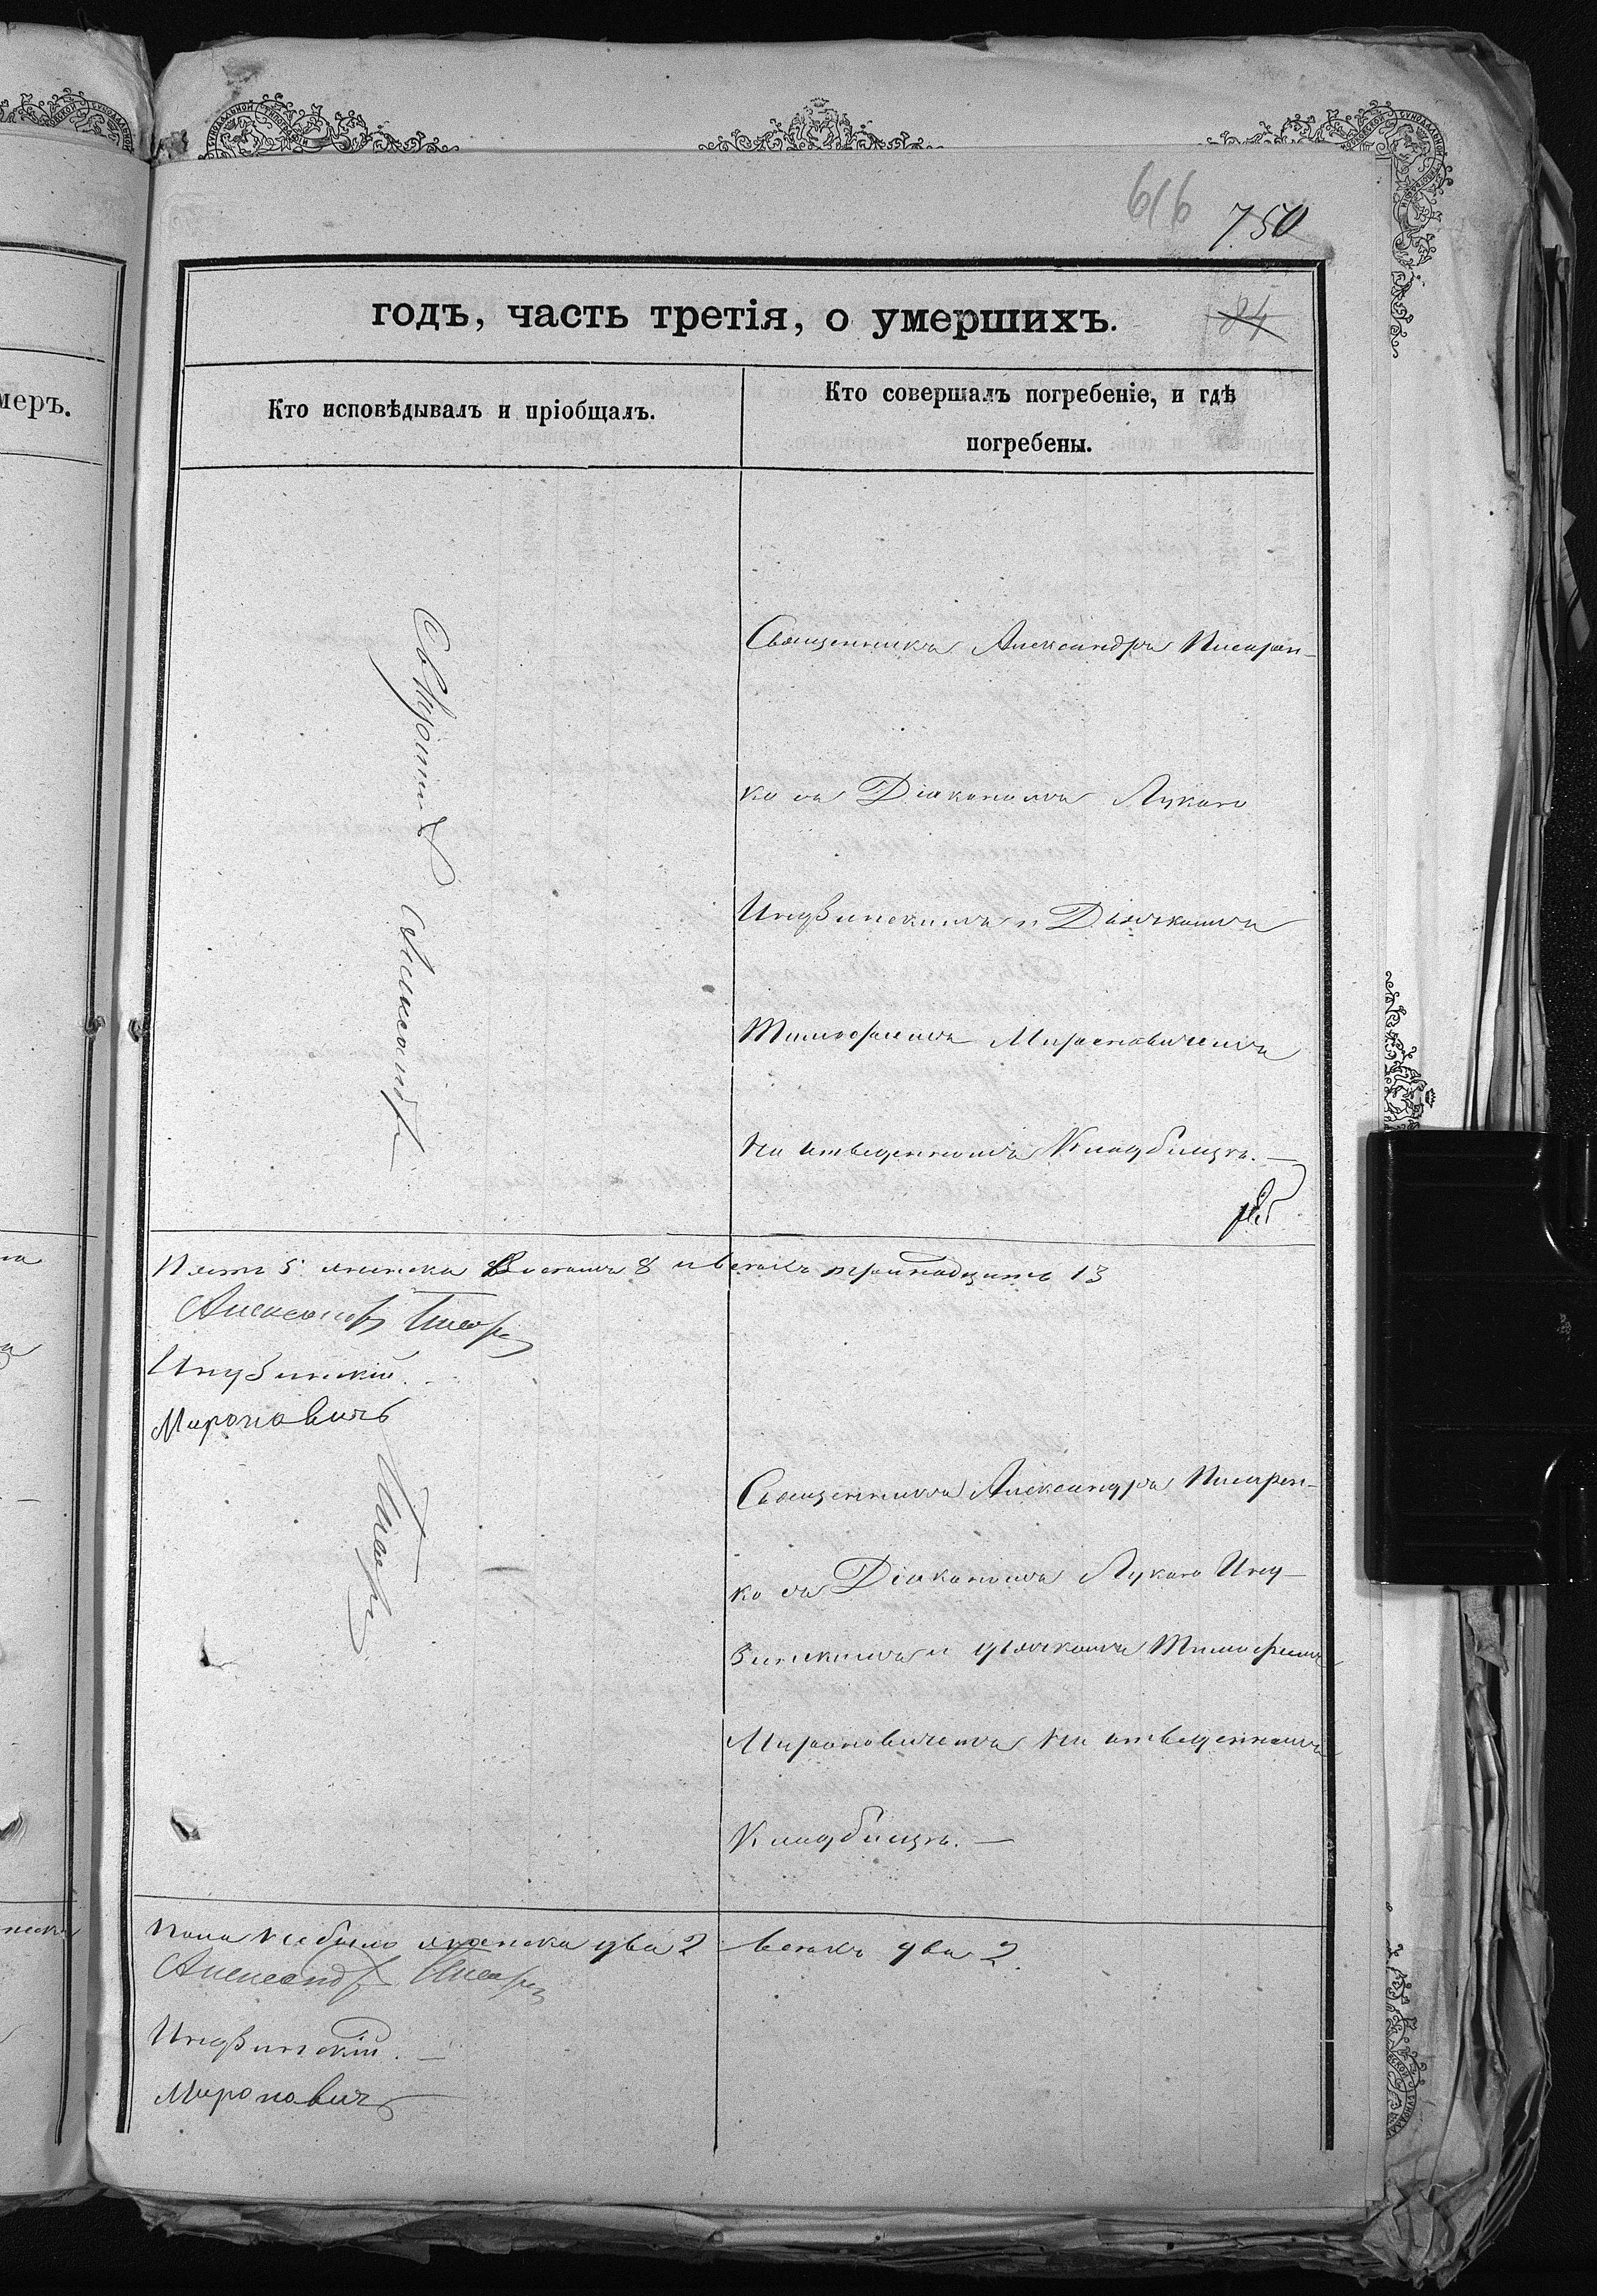 616 750
годъ, часть третія, о умершихъ. 84
меръ.
Кто исповѣдывалъ и пріобщалъ.
Кто совершалъ погребеніе, и гдѣ
погребены.
Священникъ Александръ Писарен-
ко съ Діакономъ Лукою
Индзинскимъ и Дьячкомъ
Тимофеемъ Мироновичемъ
на отведенномъ Кладбищѣ. —
Александръ
женска 8 и всехъ тринадцать 13
Александръ Писар
Индзинскій.
Мироновичъ
Писар
Священникъ Александръ Писарен-
ко съ Діакономъ Лукою Инд-
зинскимъ и дьячкомъ Тимофеемъ
Мироновичемъ на отведенномъ
Кладбищѣ. —
пола небыло женска два 2 всехъ два 2.
Александръ Писар
Индзинскій. —
Мироновичъ